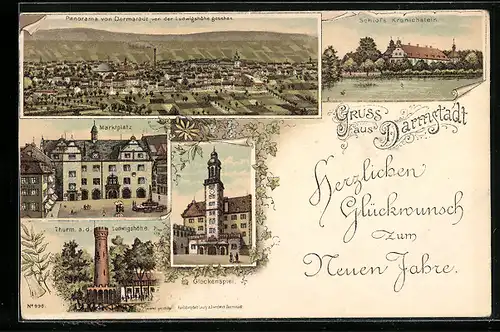 Panorama von Darmstadt, von der Ludwigshöhe gesehen.
Schloss Kranichstein.
Gruss aus Darmstadt
Marktplatz
Herzlichen
Glückwunsch
zum
Neuen Jahre.
Thurm a. d. Ludwigshöhe.
Glockenspiel.